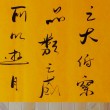 之大俯察
品類之盛
所以遊目